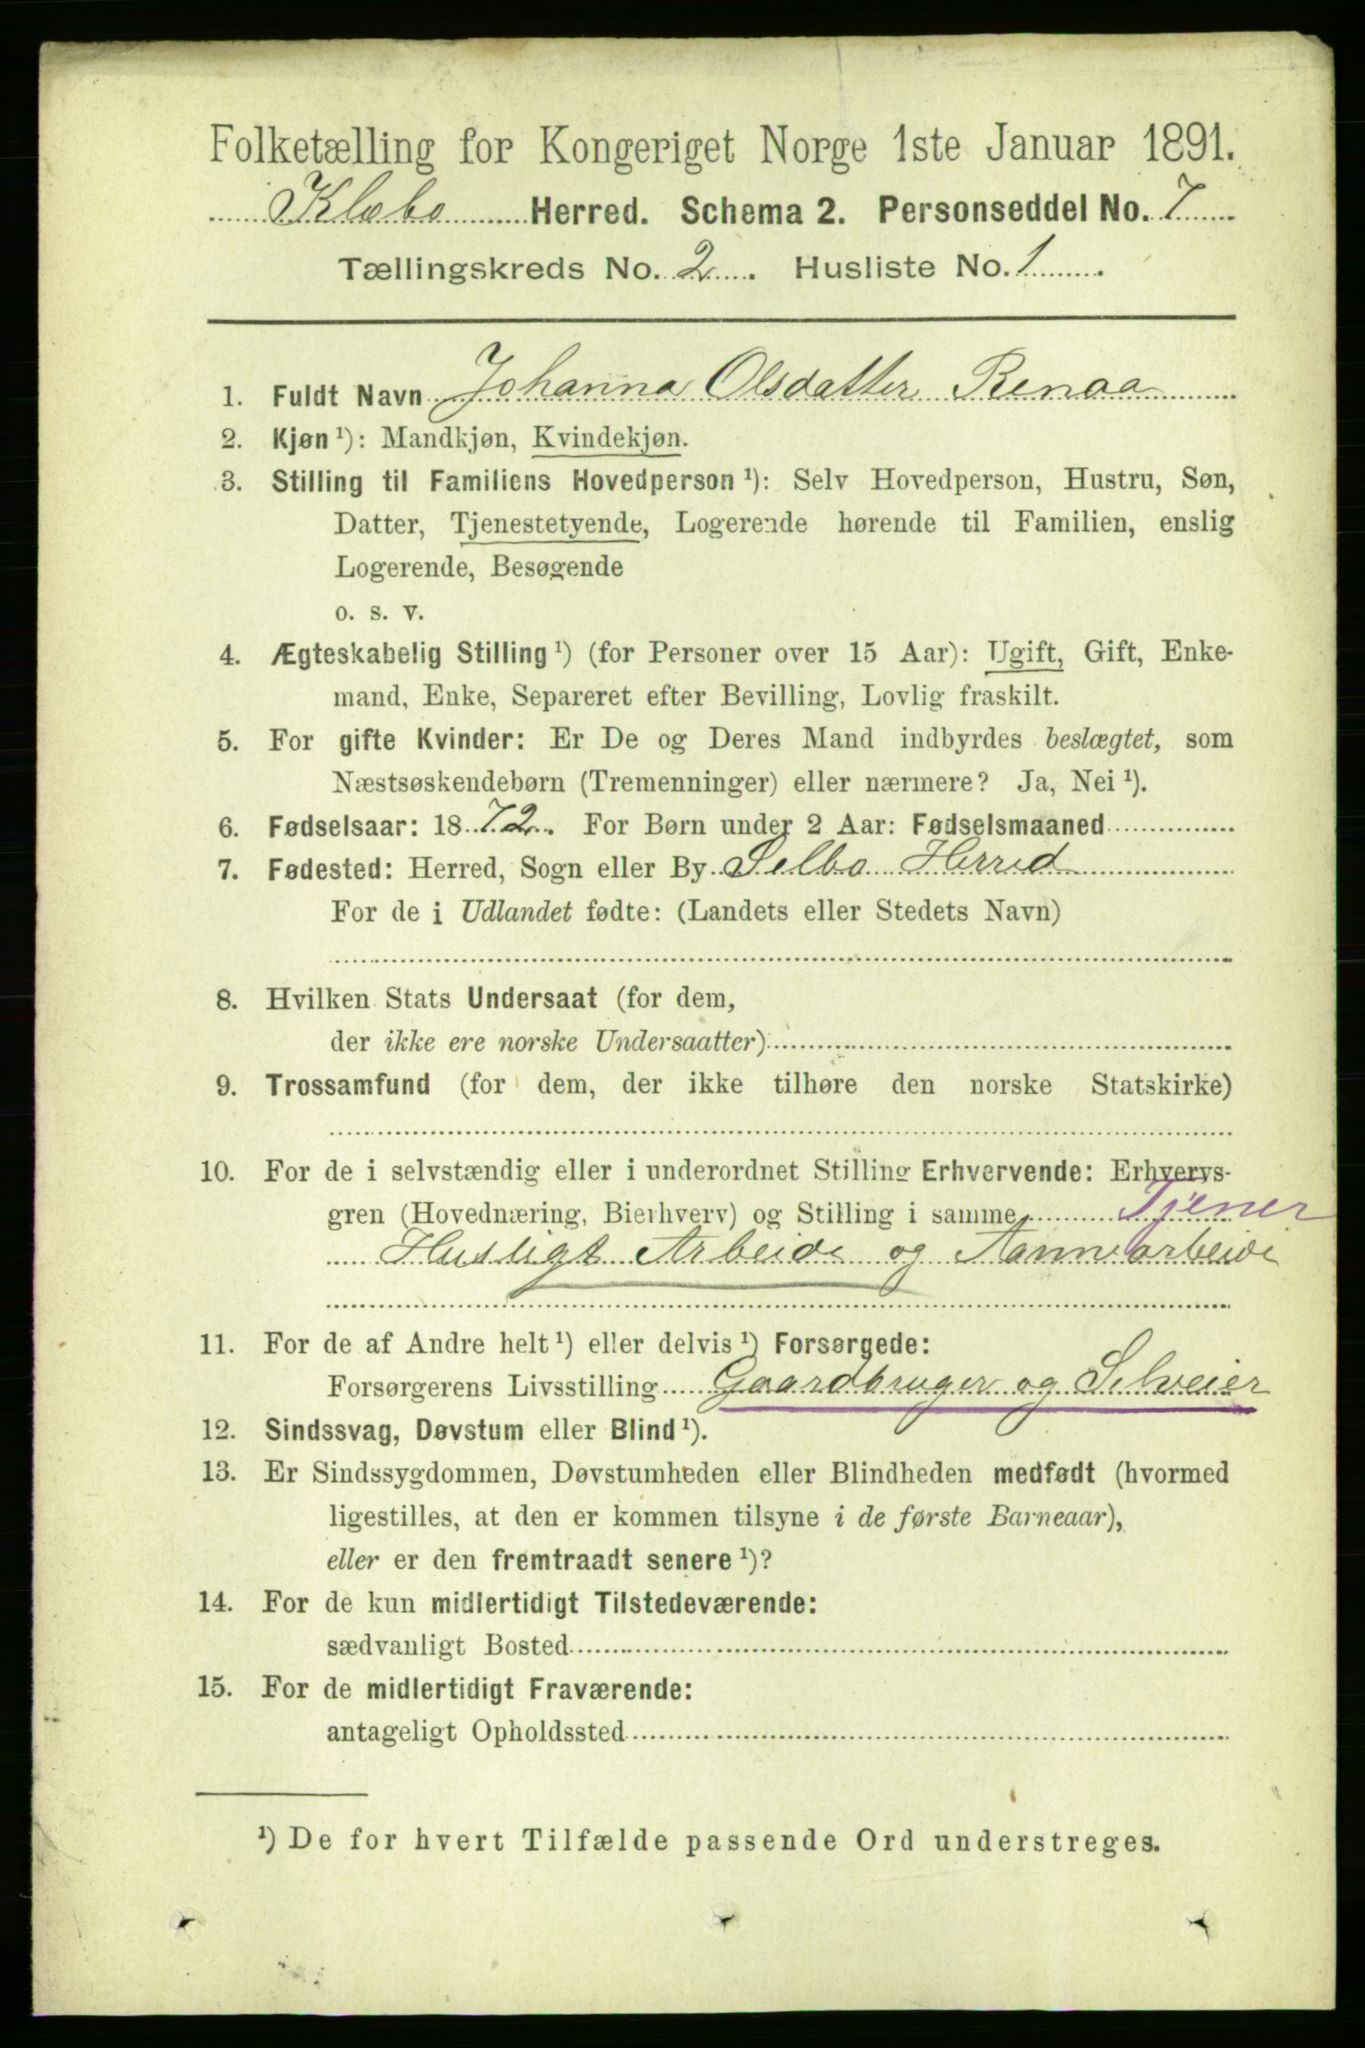 Folketælling for Kongeriget Norge 1ste Januar 1891.
Klæbo Herred. Schema 2. Personseddel No. 7
Tællingskreds No. 2. Husliste No. 1.
1. Fuldt Navn Johanna Olsdatter Renaa
2. Kjøn ¹): Mandkjøn, Kvindekjøn.
3. Stilling til Familiens Hovedperson ¹): Selv Hovedperson, Hustru, Søn,
Datter, Tjenestetyende, Logerende hørende til Familien, enslig
Logerende, Besøgende
o. s. v.
4. Ægteskabelig Stilling ¹) (for Personer over 15 Aar): Ugift, Gift, Enke-
mand, Enke, Separeret efter Bevilling, Lovlig fraskilt.
5. For gifte Kvinder: Er De og Deres Mand indbyrdes beslægtet, som
Næstsøskendebørn (Tremenninger) eller nærmere? Ja, Nei ¹).
6. Fødselsaar: 1872. For Børn under 2 Aar: Fødselsmaaned
7. Fødested: Herred, Sogn eller By Selbo Herred
For de i Udlandet fødte: (Landets eller Stedets Navn)
8. Hvilken Stats Undersaat (for dem,
der ikke ere norske Undersaatter)
9. Trossamfund (for dem, der ikke tilhøre den norske Statskirke)
10. For de i selvstændig eller i underordnet Stilling Erhvervende: Erhvervs-
gren (Hovednæring, Bierhverv) og Stilling i samme Tjener
Husligt Arbeide og Aannearbeide
11. For de af Andre helt ¹) eller delvis ¹) Forsørgede:
Forsørgerens Livsstilling Gaardbruger og Selveier
12. Sindssvag, Døvstum eller Blind ¹).
13. Er Sindssygdommen, Døvstumheden eller Blindheden medfødt (hvormed
ligestilles, at den er kommen tilsyne i de første Barneaar),
eller er den fremtraadt senere ¹)?
14. For de kun midlertidigt Tilstedeværende:
sædvanligt Bosted
15. For de midlertidigt Fraværende:
antageligt Opholdssted
¹) De for hvert Tilfælde passende Ord understreges.